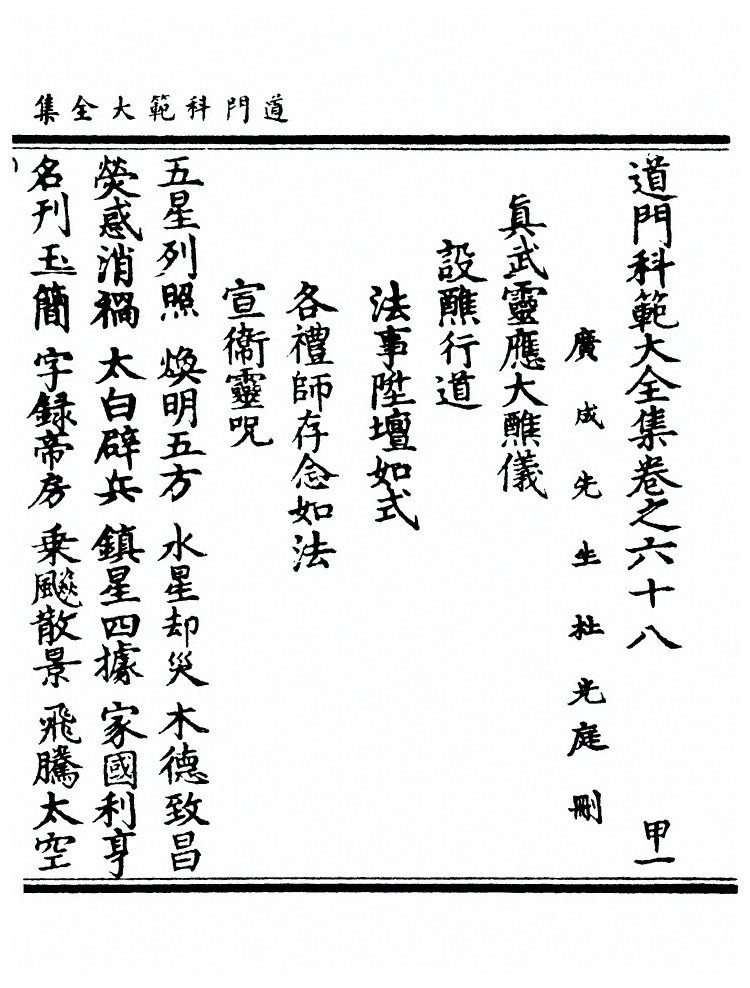 道門科範大全集
道門科範大全集卷之六十八 甲一
廣成先生杜光庭刪
眞武靈應大醮儀
設醮行道
法事陞壇如式
各禮師存念如法
宣衞靈呪
五星列照 煥明五方 水星却災 木德致昌
熒惑消禍 太白辟兵 鎮星四據 家國利亨
名刊玉簡 字録帝房 乗飈散景 飛騰太空